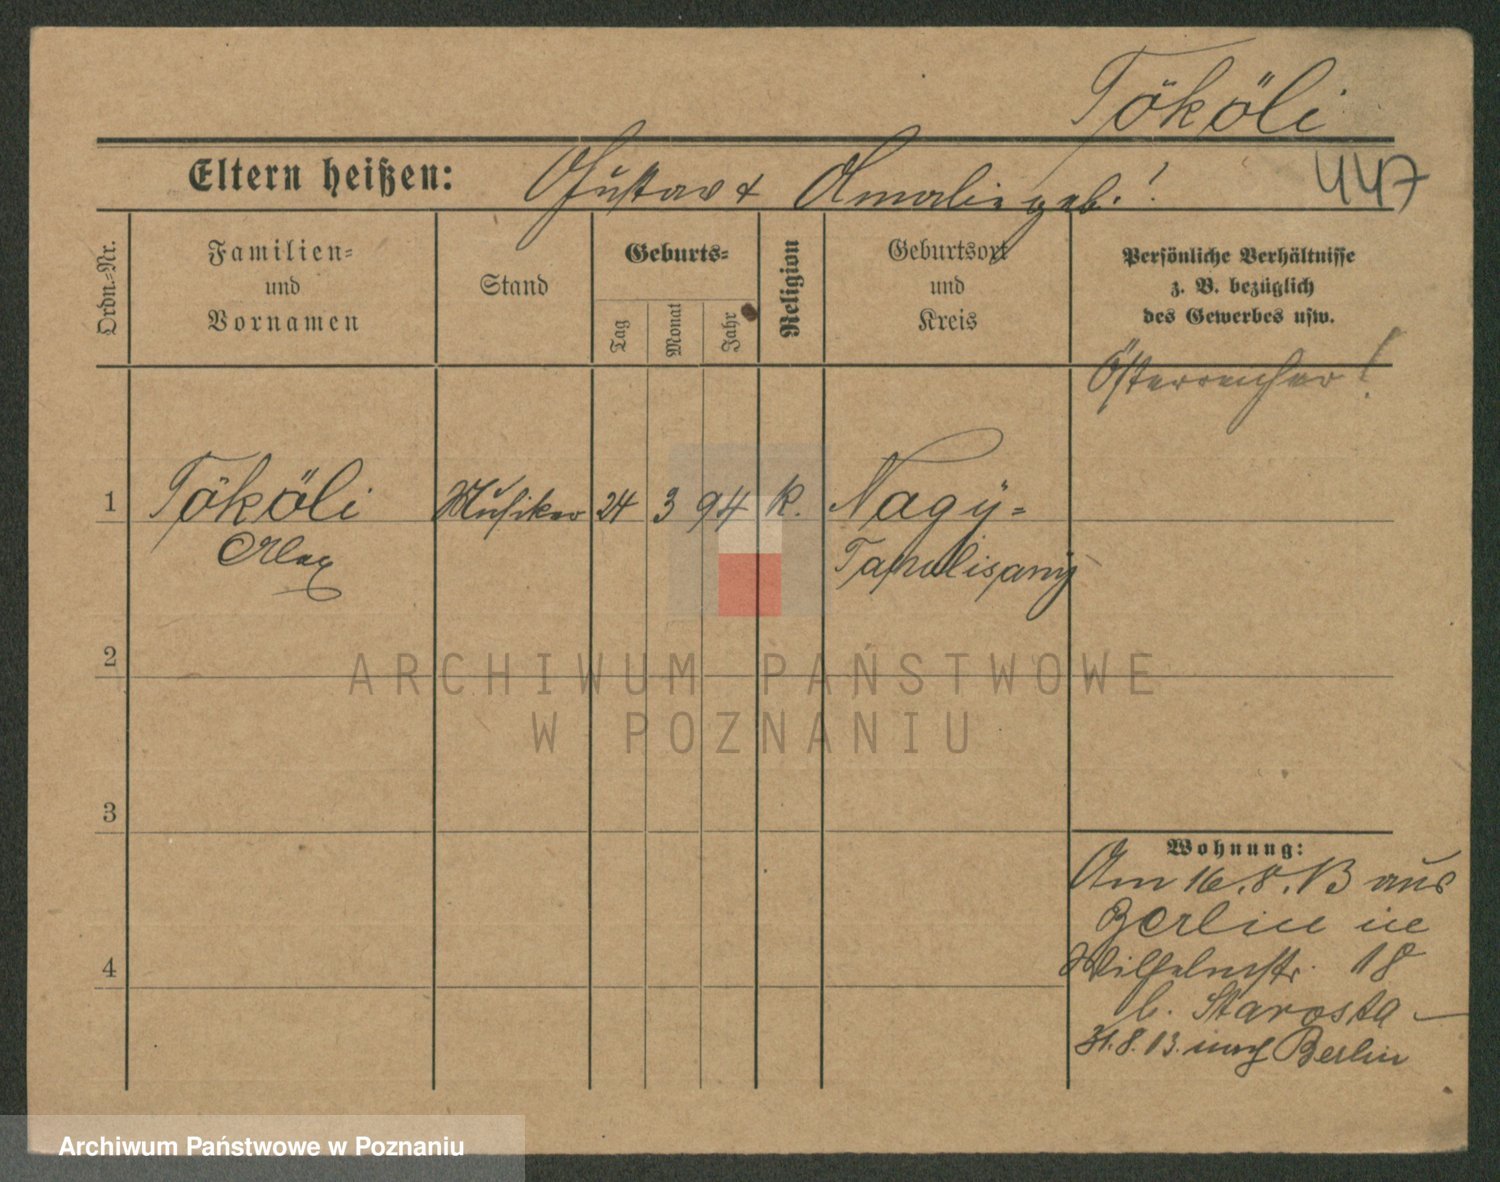 Tököli
447
Eltern heißen: Gustav & Amalie geb.!
Ordn.-Nr.
Familien-
und
Vornamen
Stand
Geburts-
Tag
Monat
Jahr
Religion
Geburtsort
und
Kreis
Persönliche Verhältnisse
z. B. bezüglich
des Gewerbes usw.
Österreicher!
1 Tököli Musiker 24 3 94 K. Nagÿ-
Alex
2
3
4
Wohnung:
Am 16.8.13 aus
Berlin in
Wilhelmstr. 18
b. Starosta –
31.8.13. nach Berlin
ARCHIWUM PAŃSTWOWE
W POZNANIU
Archiwum Państwowe w Poznaniu